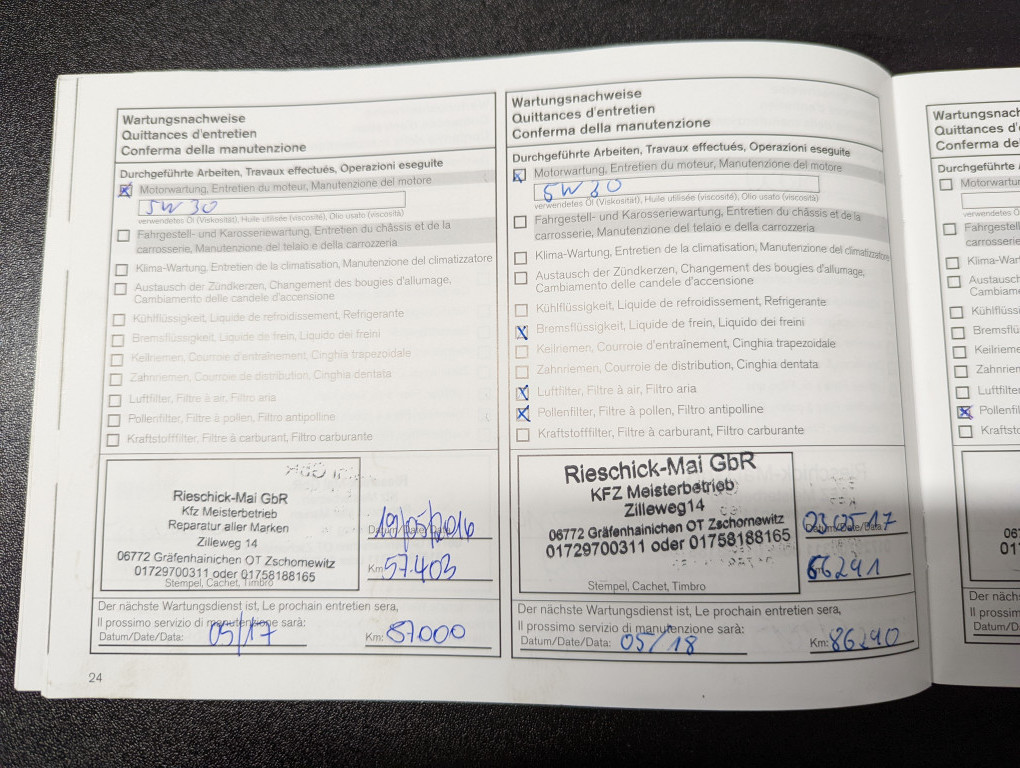 Wartungsnachweise
Quittances d'entretien
Conferma della manutenzione
Durchgeführte Arbeiten, Travaux effectués, Operazioni eseguite
Motorwartung, Entretien du moteur, Manutenzione del motore
5W30
verwendetes Öl (Viskosität), Huile utilisée (viscosité), Olio usato (viscosità)
Fahrgestell- und Karosseriewartung, Entretien du châssis et de la
carrosserie, Manutenzione del telaio e della carrozzeria
Klima-Wartung, Entretien de la climatisation, Manutenzione del climatizzatore
Austausch der Zündkerzen, Changement des bougies d'allumage,
Cambiamento delle candele d'accensione
Kühlflüssigkeit, Liquide de refroidissement, Refrigerante
Bremsflüssigkeit, Liquide de frein, Liquido dei freini
Keilriemen, Courroie d'entraînement, Cinghia trapezoidale
Zahnriemen, Courroie de distribution, Cinghia dentata
Luftfilter, Filtre à air, Filtro aria
Pollenfilter, Filtre à pollen, Filtro antipolline
Kraftstofffilter, Filtre à carburant, Filtro carburante
Rieschick-Mai GbR
Kfz Meisterbetrieb
Reparatur aller Marken
Zilleweg 14
06772 Gräfenhainichen OT Zschornewitz
01729700311 oder 01758188165
Stempel, Cachet, Timbro
19/05/2016
Datum/Date/Data:
Km: 57.403
Der nächste Wartungsdienst ist, Le prochain entretien sera,
Il prossimo servizio di manutenzione sarà:
Datum/Date/Data: 05/17 Km: 87000
24
Wartungsnachweise
Quittances d'entretien
Conferma della manutenzione
Durchgeführte Arbeiten, Travaux effectués, Operazioni eseguite
Motorwartung, Entretien du moteur, Manutenzione del motore
5W30
verwendetes Öl (Viskosität), Huile utilisée (viscosité), Olio usato (viscosità)
Fahrgestell- und Karosseriewartung, Entretien du châssis et de la
carrosserie, Manutenzione del telaio e della carrozzeria
Klima-Wartung, Entretien de la climatisation, Manutenzione del climatizzatore
Austausch der Zündkerzen, Changement des bougies d'allumage,
Cambiamento delle candele d'accensione
Kühlflüssigkeit, Liquide de refroidissement, Refrigerante
Bremsflüssigkeit, Liquide de frein, Liquido dei freini
Keilriemen, Courroie d'entraînement, Cinghia trapezoidale
Zahnriemen, Courroie de distribution, Cinghia dentata
Luftfilter, Filtre à air, Filtro aria
Pollenfilter, Filtre à pollen, Filtro antipolline
Kraftstofffilter, Filtre à carburant, Filtro carburante
Rieschick-Mai GbR
KFZ Meisterbetrieb
Zilleweg14
06772 Gräfenhainichen OT Zschornewitz
01729700311 oder 01758188165
Stempel, Cachet, Timbro
Datum/Date/Data:
66291
Der nächste Wartungsdienst ist, Le prochain entretien sera,
Il prossimo servizio di manutenzione sarà:
Datum/Date/Data: 05/18 Km: 86290
Wartungsnach
Quittances d
Conferma de
Durchgeführte
Motorwartu
Fahrgestell
carrosserie
Klima-War
Austausch
Cambiame
Kühlflüssi
Bremsflüs
Keilrieme
Zahnrieme
Luftfilter
Pollenfil
Kraftsto
Der näch
Il prossim
Datum/D